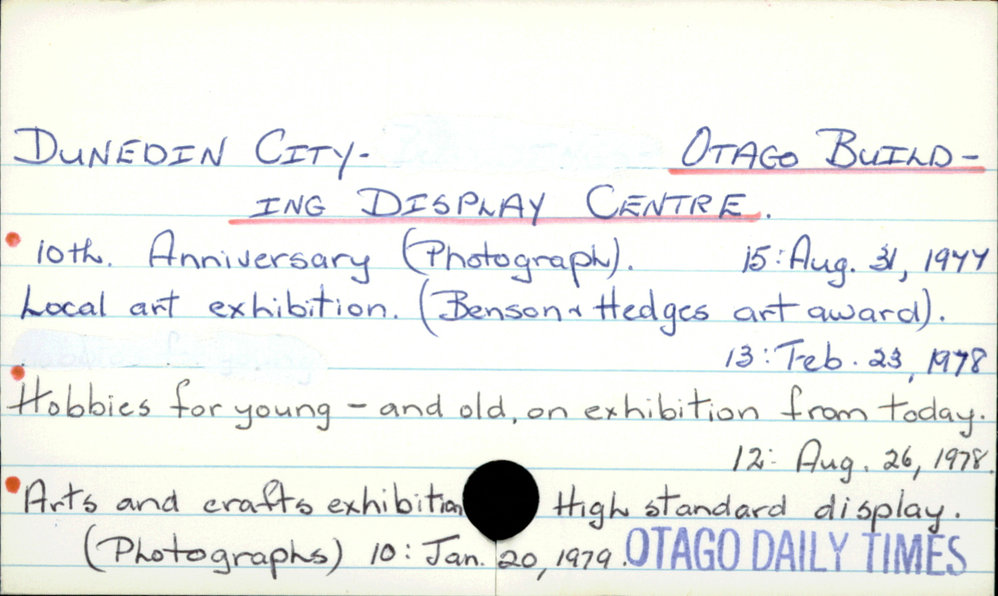 DUNEDIN CITY- OTAGO BUILD-
ING DISPLAY CENTRE.
10th. Anniversary (Photograph). 15: Aug. 31, 1977
Local art exhibition. (Benson & Hedges art award).
13: Feb. 23, 1978
Hobbies for young - and old, on exhibition from today.
12: Aug. 26, 1978.
Arts and crafts exhibition High standard display.
(Photographs) 10: Jan. 20, 1979. OTAGO DAILY TIMES